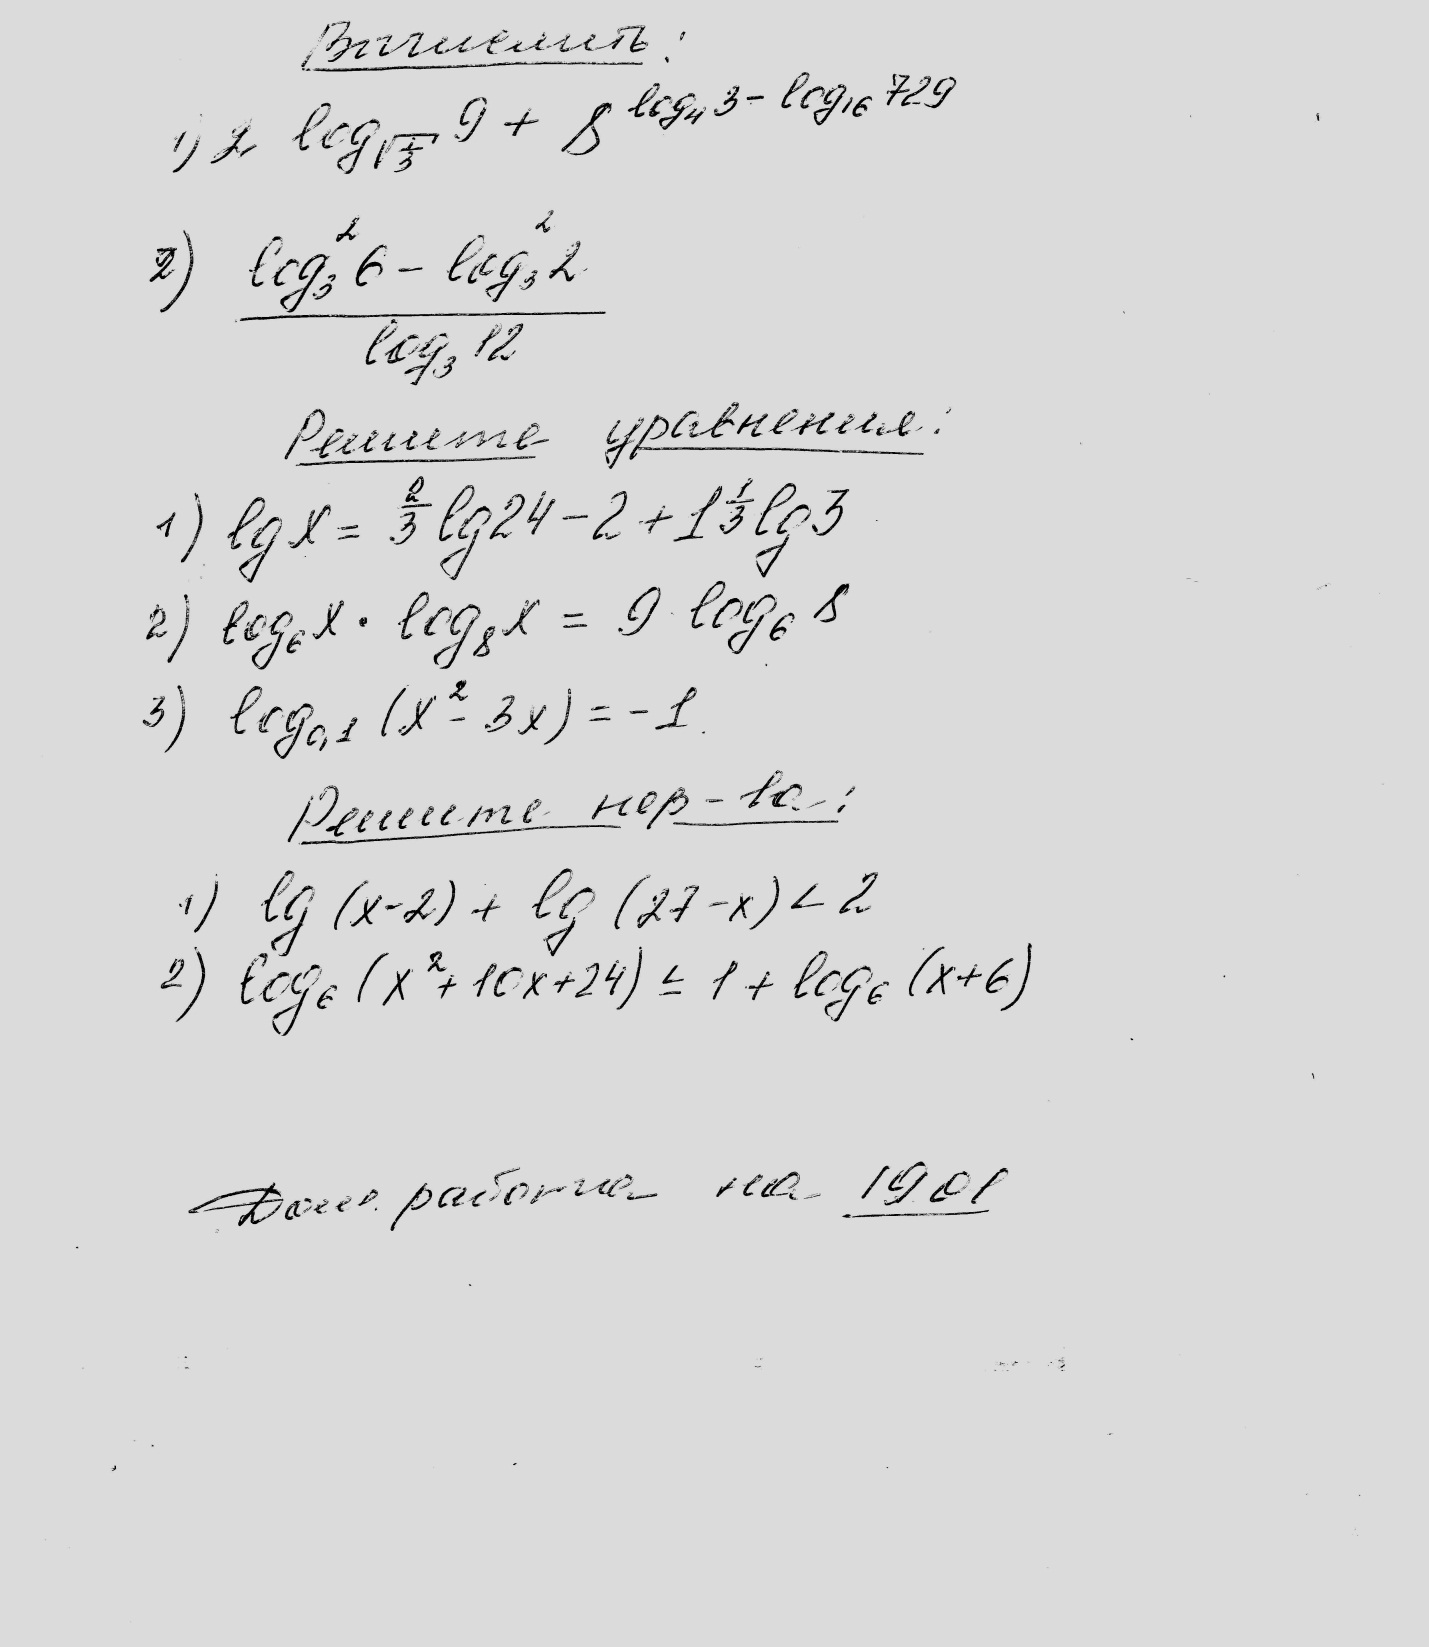 Вычислить:
1) 2 log_{√(1/3)} 9 + 8^{log₄3 − log₁₆729}
2) (log₃²6 − log₃²2) / (log₃12)
Решите уравнения:
1) lg x = 2/3 lg24 − 2 + 1 1/3 lg3
2) log₆x · log₈x = 9 log₆8
3) log₀,₁ (x² − 3x) = −1
Решите нер-ва:
1) lg (x−2) + lg (27−x) < 2
2) log₆ (x² + 10x + 24) ≤ 1 + log₆ (x+6)
Дом. работа на 19 01